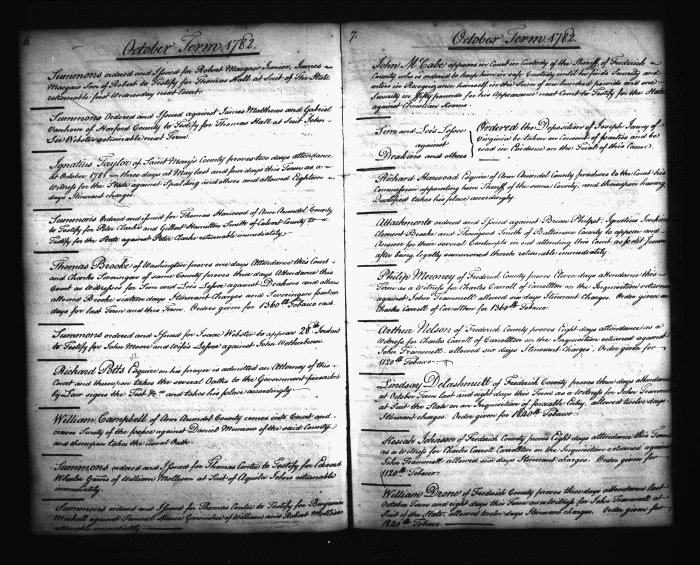 6.
October Term 1782.
Summons ordered and Issued for Robert Margaw Junior, James
Margaw Son of Robert to Testify for Thomas Hall at Suit of The State
returnable first Wednesday next Court.
Summons Ordered and Issued against James Matthews and Gabriel
Vanhorn of Harford County to Testify for Thomas Hall at Suit John
Lee Webster returnable next Term
Ignatius Taylor of Saint Mary's County proves two days attendance
at October 1781 three days at May last and five days this Term as a
Witness for the State against Spalding and others and allowed Eighteen
days Itinerant charges.
Summons Ordered and issued for Thomas Harwood of Ann Arundel County
to Testify for Peter Clarke and Gilbert Hamilton Smith of Calvert County to
Testify for the State against Peter Clarke returnable immediately
Thomas Brooke of Washington proves one days Attendance this Court
and Charles Swearingen of same County proves three days Attendance this
Court as witnesses for Sim and Lee's Lessee against Deakins and others
allowed Brooke sixteen days Itinerant Charges and Swearingen fourteen
days for last Term and this Term. Orders given for 1360 lb Tobacco each.
Summons ordered and issued for Isaac Webster to appear 28th Instant
to Testify for John Moore and Wife's Lessee against John
Richard Potts Esquire on his prayer is admitted an Attorney of this
Court and thereupon takes the several Oaths to the Government
by Law signs the Test &c and takes his place accordingly
William Campbell of Ann Arundel County comes into Court and
craves Surety of the peace against Daniel of the said County
and thereupon takes the usual Oath
Summons ordered and Issued for Thomas Contee to Testify for Edward
Wheeler of William Mollison at Suit of Aquila Johns returnable
immediately.
Summons ordered and Issued for Thomas Contee to Testify for Benjamin
Mackall against Samuel Garnishee of William and Robert Mollison
returnable immediately
7.
October Term 1782.
John McCabe appears in Court in Custody of the Sheriff of Frederick
County who is ordered to keep him in safe Custody until he finds Security and
enters in Recognizance himself in the Sum of one hundred pounds and one
Security in fifty pounds for his Appearance next Court to Testify for the State
against Christian
Sim and Lee's Lessee
against
Deakins and others
Ordered the Deposition of Joseph of
Virginia be taken on Consent of parties and be
read in Evidence on the Trial of this Cause.
Richard Harwood Esquire of Ann Arundel County produces to the Court his
Commission appointing him Sheriff of the same County, and thereupon having
Qualified takes his place accordingly.
Attachments ordered and Issued against Brian Philpot, Ignatius
Clement Brooke and Thompson Smith of Baltimore County to appear and
Answer for their several Contempts in not attending this Court as Jurors
after being legally summoned thereto returnable immediately.
Philip Meroney of Frederick County proves Eleven days attendance this
Term as a Witness for Charles Carroll of Carrollton on the Inquisition returned
against John Trammell allowed six days Itinerant Charges. Order given on
Charles Carroll of Carrollton for 1360 lb Tobacco.
Arthur Nelson of Frederick County proves Eight days attendance as a
Witness for Charles Carroll of Carrollton on the Inquisition returned against
John Trammell. allowed six days Itinerant Charges. Order given for
1120 lb Tobacco
Lindsay Delashmutt of Frederick County proves three days attendance
at October last and eight days this Term as a Witness for John Trammell
at Suit the State on an Inquisition of allowed twelve days
Itinerant charges. Order given for 1840 lb Tobacco
Resiah Johnson of Frederick County proves Eight days attendance this Term
as a Witness for Charles Carroll Carrollton on the Inquisition returned against
John Trammell allowed six days Itinerant charges. Order given for
1120 lb Tobacco
William of Frederick County proves three days attendance last
October Term and eight days this Term as a Witness for John Trammell at
Suit of the State, allowed twelve days Itinerant charges. Order given for
1840 lb Tobacco.